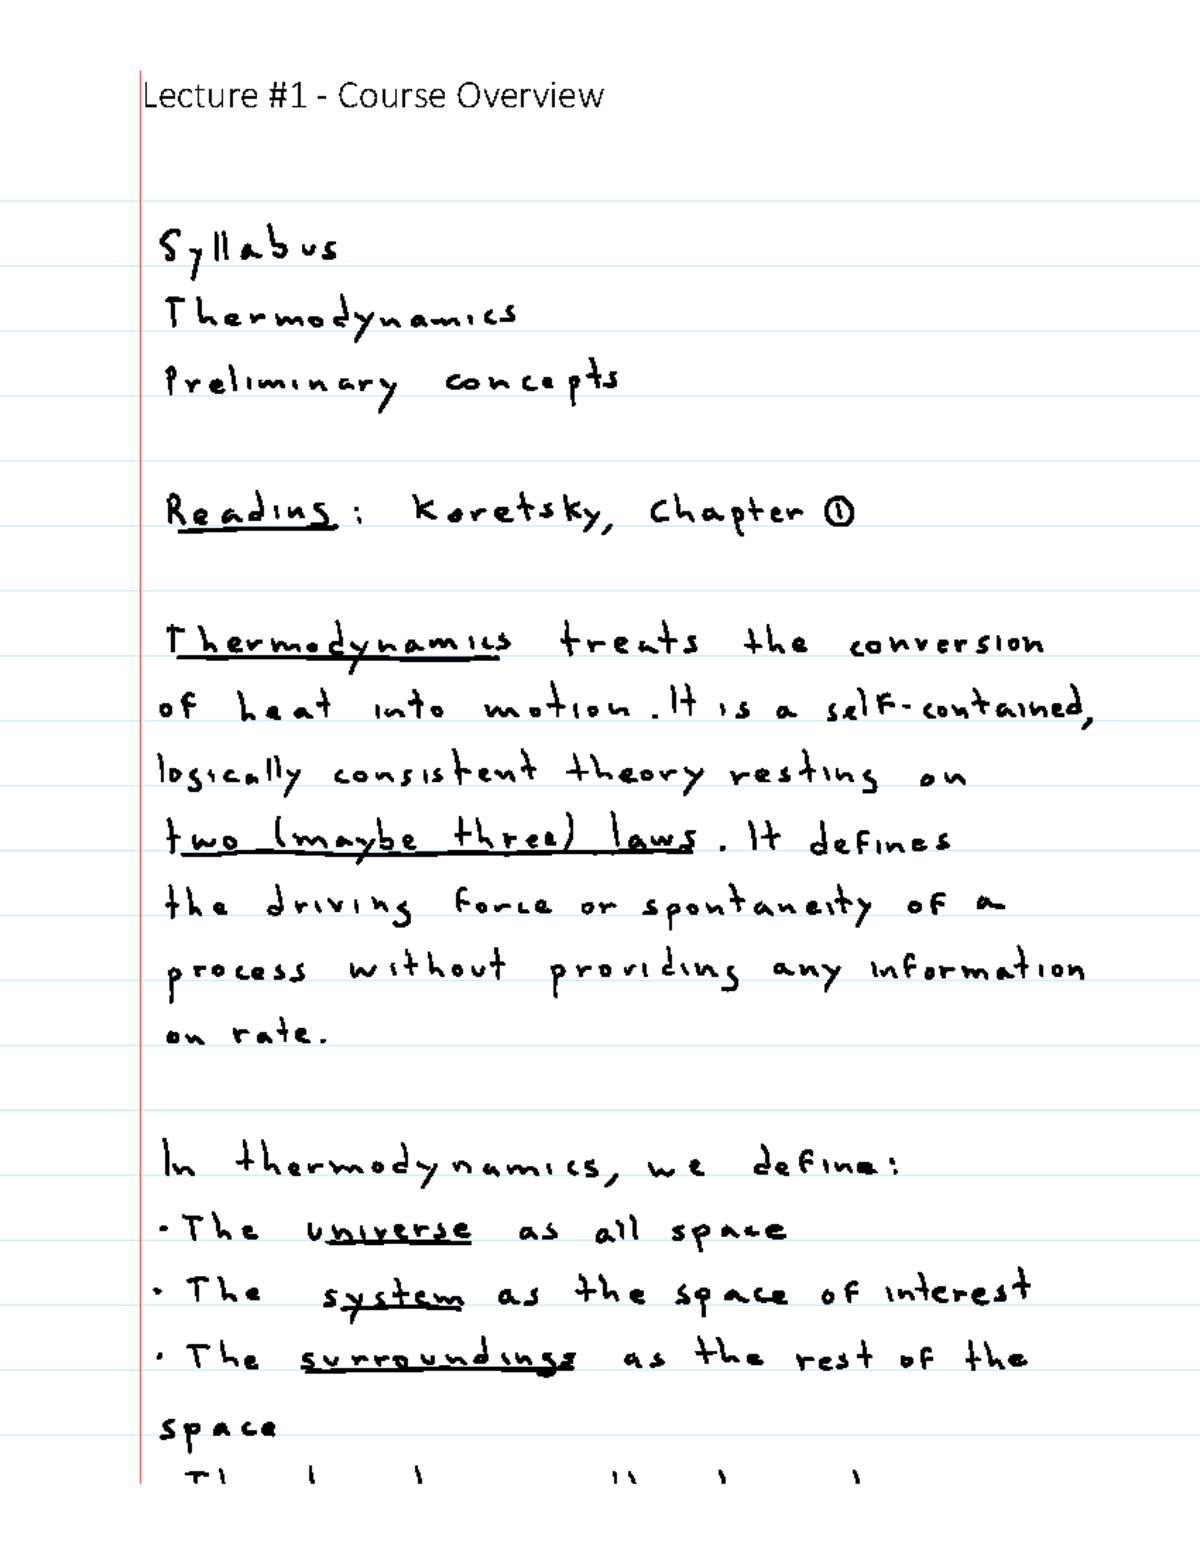 Lecture #1 - Course Overview
Syllabus
Thermodynamics
Preliminary concepts
Reading: Koretsky, Chapter ①
Thermodynamics treats the conversion
of heat into motion. It is a self-contained,
logically consistent theory resting on
two (maybe three) laws. It defines
the driving force or spontaneity of a
process without providing any information
on rate.
In thermodynamics, we define:
• The universe as all space
• The system as the space of interest
• The surroundings as the rest of the
space